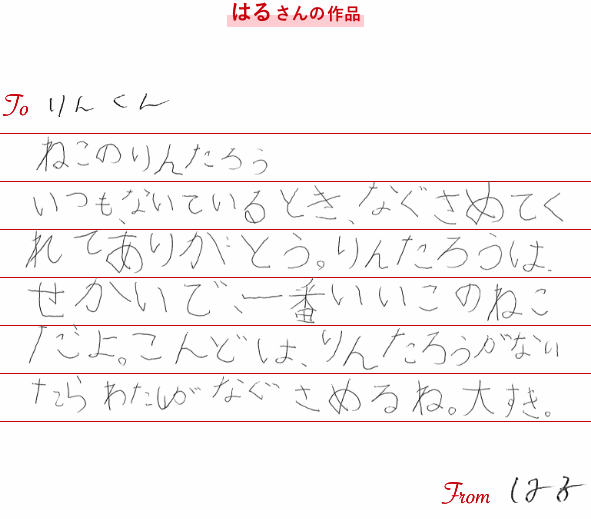 はるさんの作品
To りんくん
ねこのりんたろう
いつも、ないているとき、なぐさめてく
れてありがとう。りんたろうは、
せかいで、一番いいこのねこ
だよ。こんどは、りんたろうがない
たらわたしがなぐさめるね。大すき。
From はる